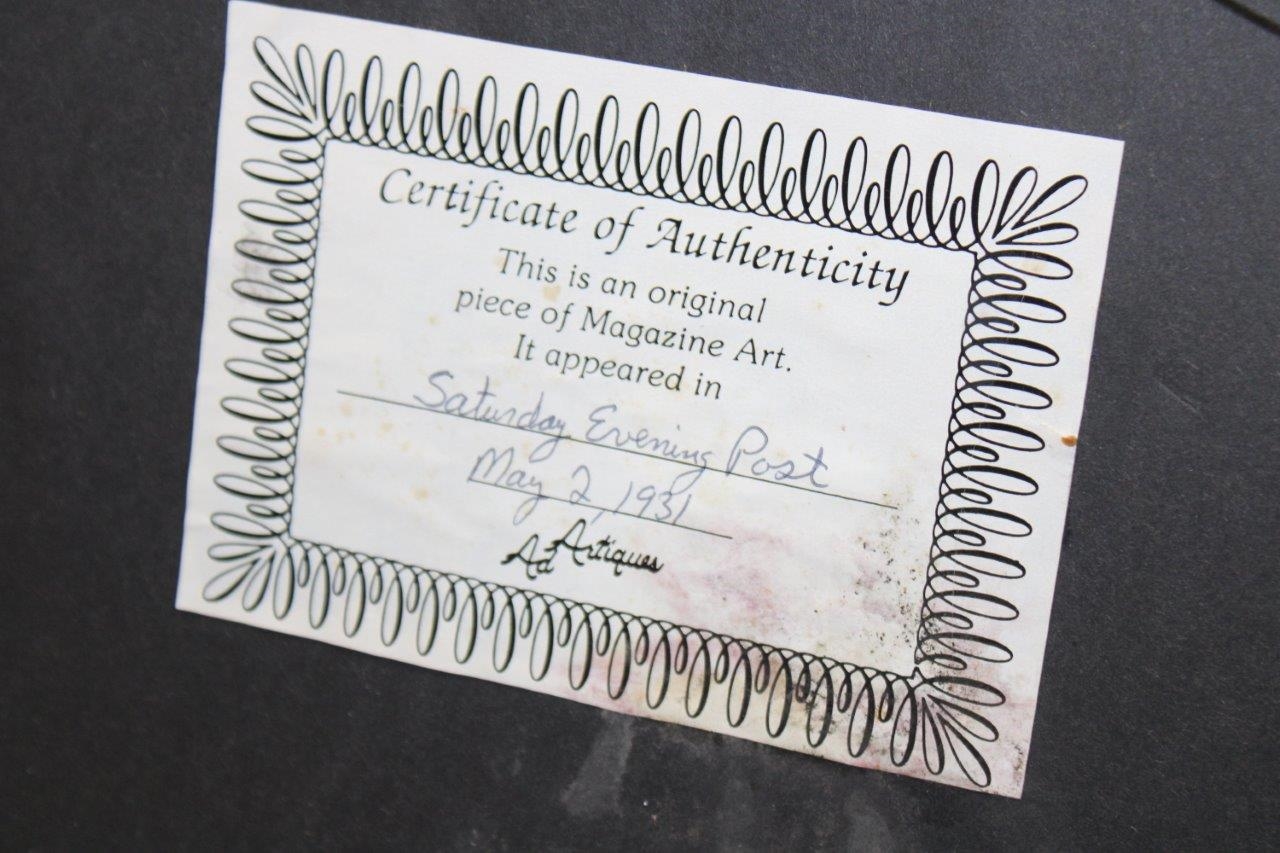 Certificate of Authenticity
This is an original
piece of Magazine Art.
It appeared in
Saturday Evening Post
May 2, 1931
Ad Artiques